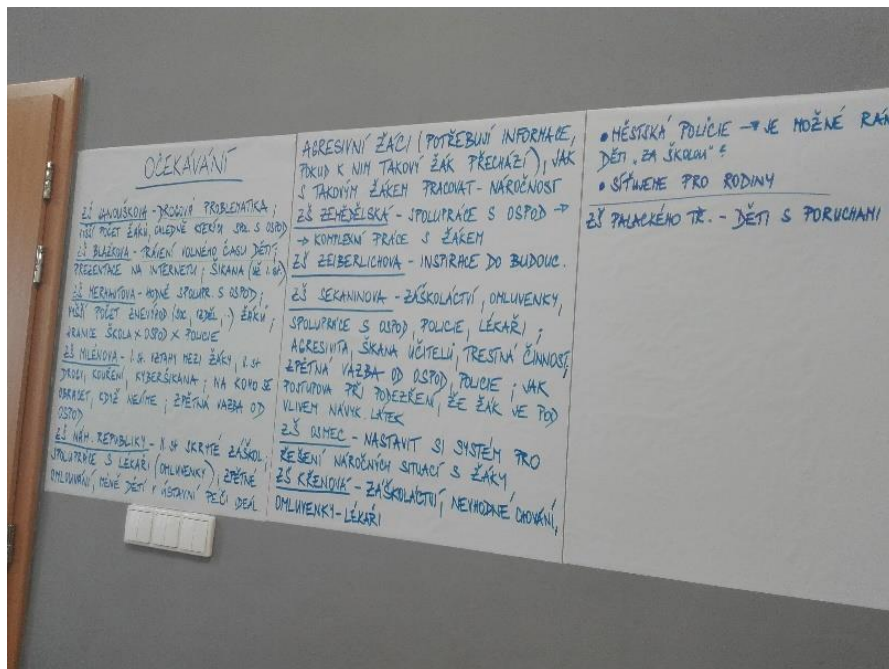 OČEKÁVÁNÍ
ZŠ JANOUŠKOVA - DROGOVÁ PROBLEMATIKA;
VYŠŠÍ POČET ŽÁKŮ, OHLEDNĚ KTERÝCH SPL. S OSPOD
ZŠ BLAŽKOVA - TRÁVENÍ VOLNÉHO ČASU DĚTÍ;
PREZENTACE NA INTERNETU; ŠIKANA (UŽ 1. ST.)
ZŠ MERHAUTOVA - HODNĚ SPOLUPR. S OSPOD;
VYŠŠÍ POČET ZNEVÝHOD (SOC, VZDĚL,..) ŽÁKŮ;
HRANICE ŠKOLA X OSPOD X POLICIE
ZŠ MILÉNOVA - I. St. VZTAHY MEZI ŽÁKY, II. St
DROGY, KOUŘENÍ, KYBERŠIKANA; NA KOHO SE
OBRACET, KDYŽ NEVÍME; ZPĚTNÁ VAZBA OD
OSPOD
ZŠ NÁM. REPUBLIKY - II. St SKRYTÉ ZÁŠKOL.,
SPOLUPRÁCE S LÉKAŘI (OMLUVENKY), ZPĚTNÉ
OMLOUVÁNÍ, MÉNĚ DĚTÍ V ÚSTAVNÍ PÉČI IDEÁL
AGRESIVNÍ ŽÁCI (POTŘEBUJÍ INFORMACE,
POKUD K NIM TAKOVÝ ŽÁK PŘECHÁZÍ), JAK
S TAKOVÝM ŽÁKEM PRACOVAT - NÁROČNOST
ZŠ ZEMĚDĚLSKÁ - SPOLUPRÁCE S OSPOD →
→ KOMPLEXNÍ PRÁCE S ŽÁKEM
ZŠ ZEIBERLICHOVA - INSPIRACE DO BUDOUC.
ZŠ SEKANINOVA - ZÁŠKOLÁCTVÍ, OMLUVENKY,
SPOLUPRÁCE S OSPOD, POLICIE, LÉKAŘI;
AGRESIVITA, ŠIKANA UČITELŮ, TRESTNÁ ČINNOST,
ZPĚTNÁ VAZBA OD OSPOD, POLICIE; JAK
POSTUPOVA PŘI PODEZŘENÍ, ŽE ŽÁK JE POD
VLIVEM NÁVYK. LÁTEK
ZŠ OSMEC - NASTAVIT SI SYSTÉM PRO
ŘEŠENÍ NÁROČNÝCH SITUACÍ S ŽÁKY
ZŠ KŘENOVÁ - ZÁŠKOLÁCTVÍ, NEVHODNÉ CHOVÁNÍ,
OMLUVENKY - LÉKAŘI
• MĚSTSKÁ POLICIE → JE MOŽNÉ RÁN
DĚTI „ZA ŠKOLOU"?
• SÍŤUJEME PRO RODINY
ZŠ PALACKÉHO TŘ. - DĚTI S PORUCHAMI